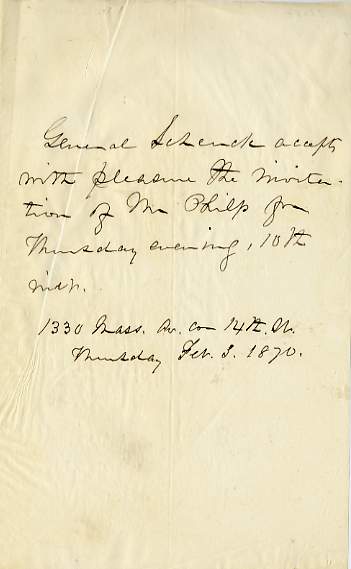 General Schenck accepts
with pleasure the invita-
tion of Mr Philp for
Thursday evening, 10th
inst.
1330 Mass. Av. cor 14th. St.
Thursday Feb. 3. 1870.